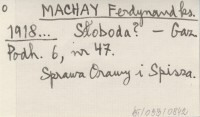 o MACHAY Ferdynand ks.
1918... Słoboda? – Gaz
Podh. 6, nr 47.
Sprawa Orawy i Spisza.